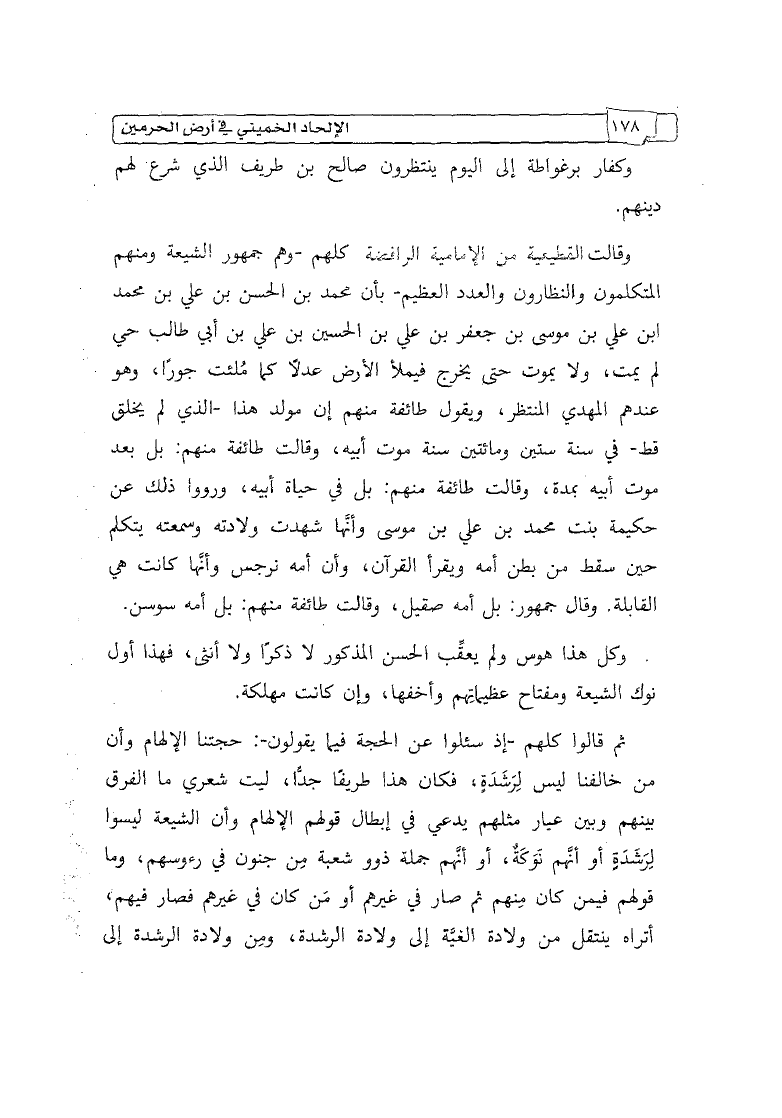 ١٧٨
الإلحاد الخميني في أرض الحرمين
وكفار برغواطة إلى اليوم ينتظرون صالح بن طريف الذي شرع لهم
دينهم.
وقالت القطيعية من الإمامية الرافضة كلهم -وهم جمهور الشيعة ومنهم
المتكلمون والنظارون والعدد العظيم- بأن محمد بن الحسن بن علي بن محمد
ابن علي بن موسى بن جعفر بن علي بن الحسين بن علي بن أبي طالب حي
لم يمت، ولا يموت حتى يخرج فيملأ الأرض عدلًا كما مُلئت جورًا، وهو
عندهم المهدي المنتظر، ويقول طائفة منهم إن مولد هذا -الذي لم يخلق
قط- في سنة ستين ومائتين سنة موت أبيه، وقالت طائفة منهم: بل بعد
موت أبيه بمدة، وقالت طائفة منهم: بل في حياة أبيه، ورووا ذلك عن
حكيمة بنت محمد بن علي بن موسى وأنَّها شهدت ولادته وسمعته يتكلم
حين سقط من بطن أمه ويقرأ القرآن، وأن أمه نرجس وأنَّها كانت هي
القابلة. وقال جمهور: بل أمه صقيل، وقالت طائفة منهم: بل أمه سوسن.
وكل هذا هوس ولم يعقِّب الحسن المذكور لا ذكرًا ولا أنثى، فهذا أول
نوك الشيعة ومفتاح عظيماتِهم وأخفها، وإن كانت مهلكة.
ثم قالوا كلهم -إذ سئلوا عن الحجة فيما يقولون-: حجتنا الإلهام وأن
من خالفنا ليس لِرَشَدَةٍ، فكان هذا طريفًا جدًّا، ليت شعري ما الفرق
بينهم وبين عيار مثلهم يدعي في إبطال قولهم الإلهام وأن الشيعة ليسوا
لِرَشَدَةٍ أو أنَّهم نَوَكَةٌ، أو أنَّهم جملة ذوو شعبة مِن جنون في رءوسهم، وما
قولهم فيمن كان مِنهم ثم صار في غيرهم أو مَن كان في غيرهم فصار فيهم،
أتراه ينتقل من ولادة الغيَّة إلى ولادة الرشدة، ومِن ولادة الرشدة إلى